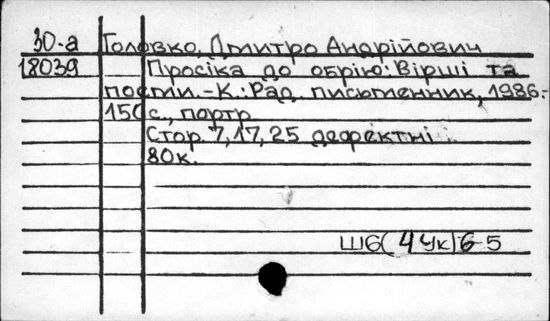 30-а Головко, Дмитро Андрійович
18039 Просіка до обрію: Вірші та
поеми.-К.: Рад. письменник, 1986.-
150с., портр.
Стор. 7, 17, 25 дефектні.
80к.
Ш6(4Ук)6-5